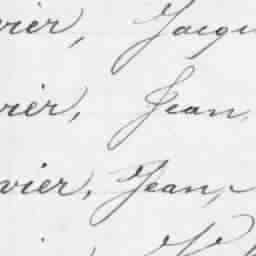 vier, Jacqu
rier, Jean,
vier, Jean,